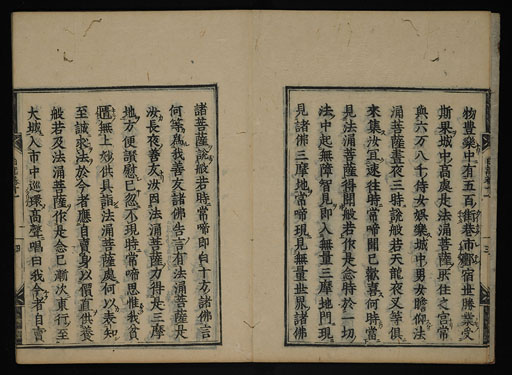 物豐樂中有五百街巷市鄽宿世勝業受
斯果城中高處是法涌菩薩所住之宮常
與六万八千侍女娛樂城中男女瞻仰法
涌菩薩晝夜三時說般若天龍夜叉等俱
來集汝宜速往時常啼聞已歡喜何時當
見法涌菩薩得聞般若作是念時於一切
法中起無障智見即入無量三摩地門現
見諸佛三摩地常啼現見無量世界諸佛
諸菩薩說般若時常啼即白十方諸佛言
何等爲我善友諸佛告言有法涌菩薩是
汝長夜善友汝因法涌菩薩力得是三摩
地方便讚慰已忽不現時常啼思惟我貧
匱無上妙供具詣法涌菩薩處何以表知
至誠求法於今者應自賣身以價直供養
般若及法涌菩薩作是念已漸次東行至
大城入市中巡環高聲唱曰我今者自賣